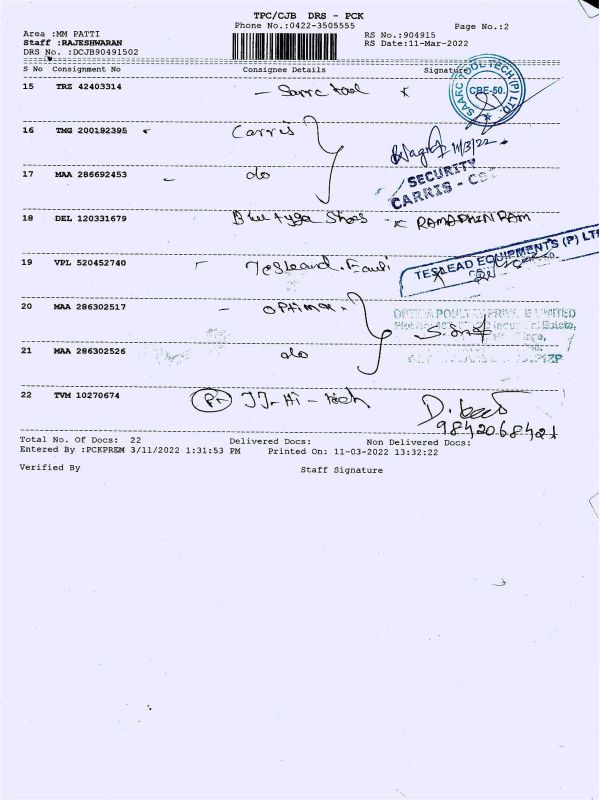 TPC/CJB DRS - PCK
Phone No.:0422-3505555 Page No.:2
Area :MM PATTI RS No.:904915
Staff :RAJESHWARAN RS Date:11-Mar-2022
DRS No. :DCJB90491502
S No Consignment No Consignee Details Signature
SAARC TOOL TECH (P) LTD.
CBE-50.
15 TRZ 42403314 - Saarc tool x
16 TMG 200192395 Carris
11/3/22
17 MAA 286692453 do
SECURITY
CARRIS - CBE
18 DEL 120331679 Shoes x RAMADHIN RAM
TESLEAD EQUIPMENTS (P) LTD
19 VPL 520452740
20 MAA 286302517 - optima.
21 MAA 286302526 do
22 TVM 10270674 JJ- Hi - tech
9842068421
Total No. Of Docs: 22 Delivered Docs: Non Delivered Docs:
Entered By :PCKPREM 3/11/2022 1:31:53 PM Printed On: 11-03-2022 13:32:22
Verified By Staff Signature